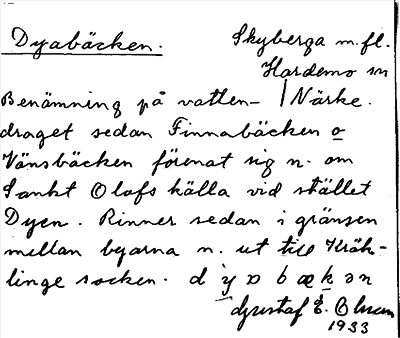 Dyabäcken.
Skyberga m.fl.
Hardemo sn
Närke.
Benämning på vatten-
draget sedan Finnabäcken o
Vänsbäcken förenat sig n. om
Sankt Olofs källa vid stället
Dyen. Rinner sedan i gränsen
mellan byarna n. ut till Kräk-
linge socken. dyabäkən
Gustaf E. Olsson
1933